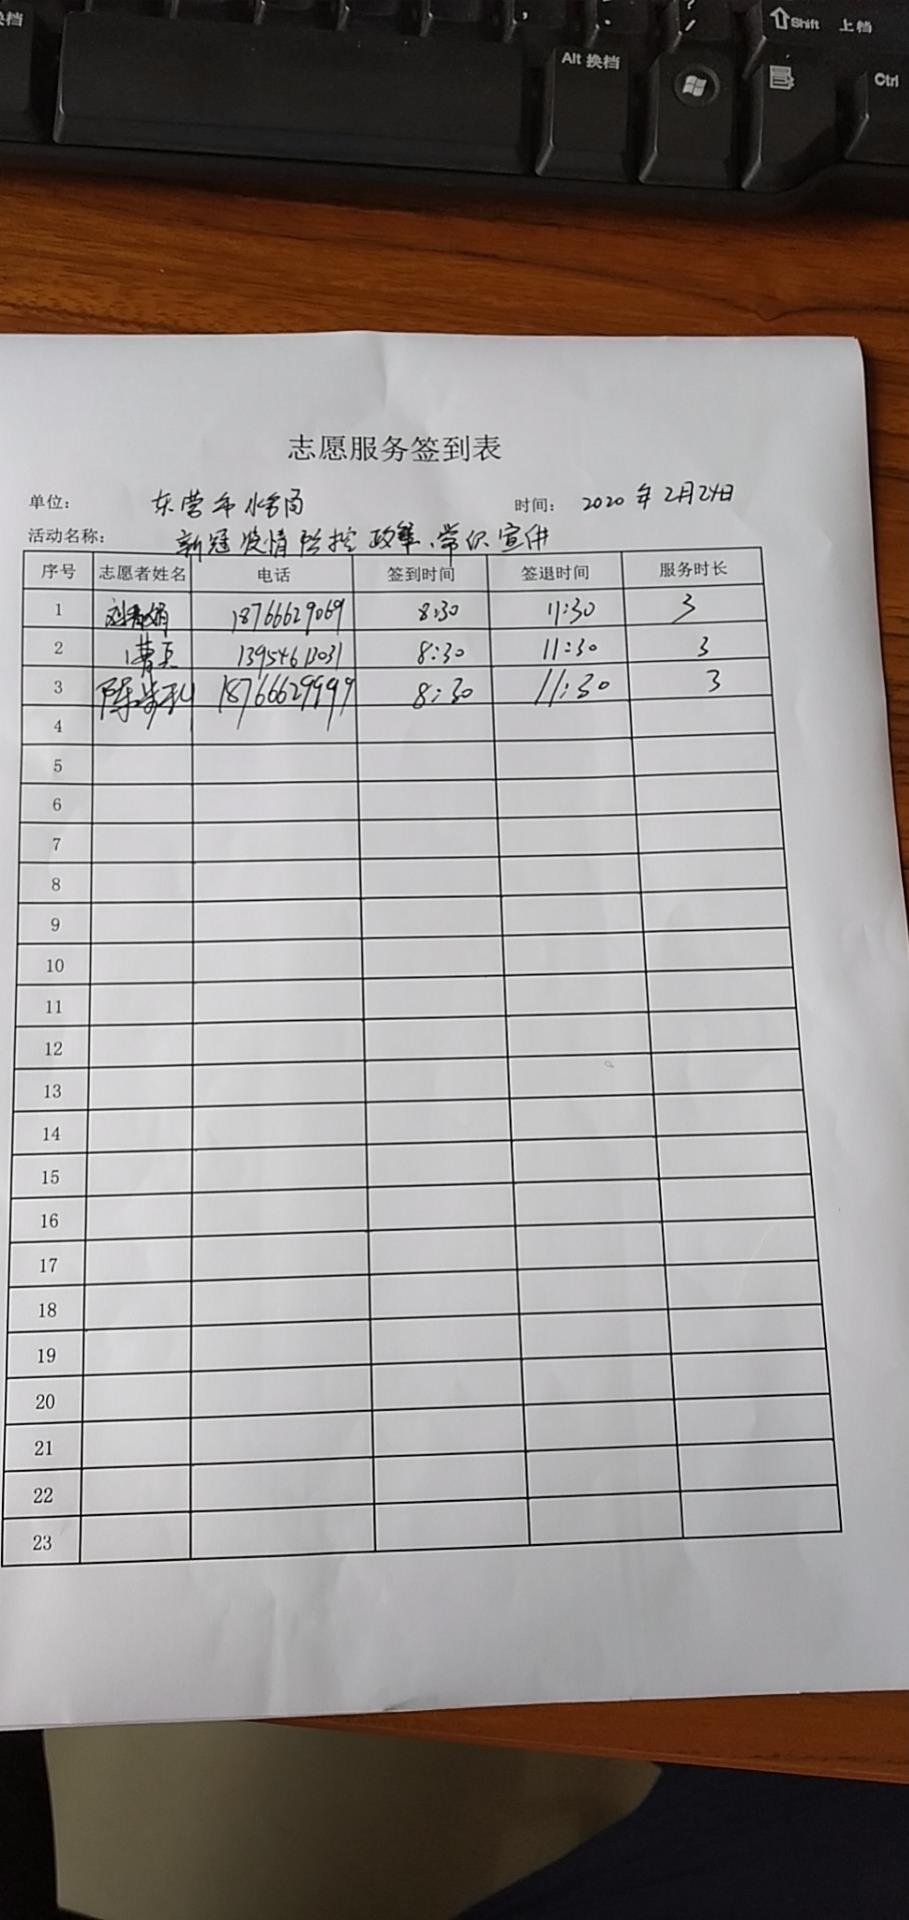 换档
Alt 换档
Shift 上档
Ctrl
志愿服务签到表
单位： 东营市水务局 时间： 2020年2月24日
活动名称： 新冠疫情防控政策、常识宣传
序号 志愿者姓名 电话 签到时间 签退时间 服务时长
1 18766629069 8:30 11:30 3
2 8:30 11:30 3
3 18766629999 8:30 11:30 3
4
5
6
7
8
9
10
11
12
13
14
15
16
17
18
19
20
21
22
23